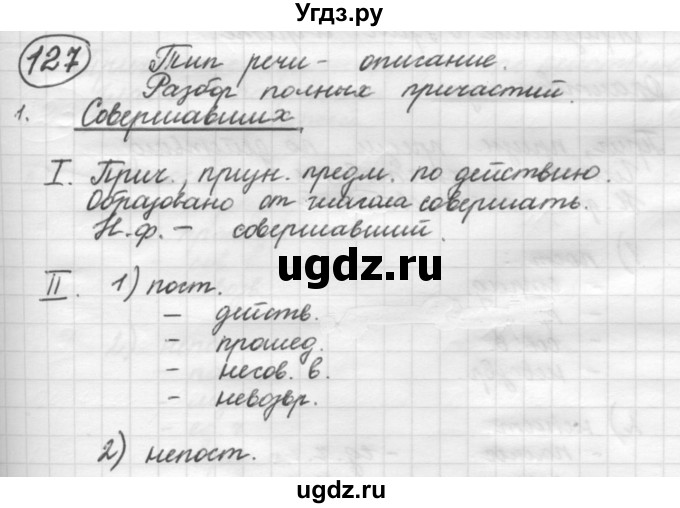 Угдз.ру
127 Тип речи - описание.
Разбор полных причастий.
1. Совершавших,
I. Прич., призн. предм. по действию.
Образовано от глагола совершать.
Н.ф. - совершавший.
ugdz.ru
II. 1) пост.
- действ.
- прошед.
- несов. в.
- невозвр.
2) непост.
ugdz.ru
ugdz.ru